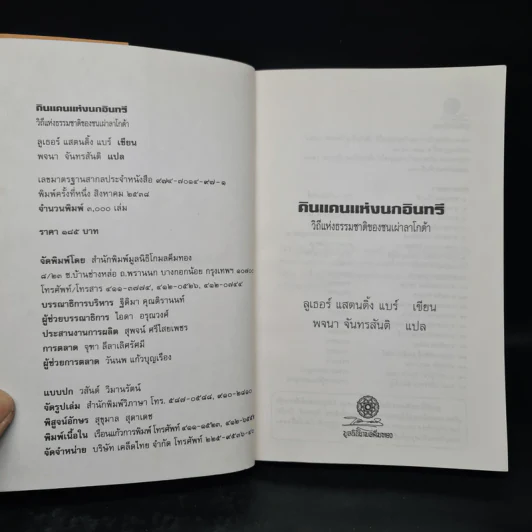 ถิ่นแดนแห่งนกอินทรี
วิถีแห่งธรรมชาติของชนเผ่าลาโกต้า
ลูเธอร์ แสตนดิ้ง แบร์ เขียน
พจนา จันทรสันติ แปล
เลขมาตรฐานสากลประจำหนังสือ ๙๗๔-๗๐๑๔-๙๗-๑
พิมพ์ครั้งที่หนึ่ง สิงหาคม ๒๕๓๘
จำนวนพิมพ์ ๓,๐๐๐ เล่ม
ราคา ๑๘๕ บาท
จัดพิมพ์โดย สำนักพิมพ์มูลนิธิโกมลคีมทอง
๘/๒๓ ซ.บ้านช่างหล่อ ถ.พรานนก บางกอกน้อย กรุงเทพฯ ๑๐๗๐๐
โทรศัพท์/โทรสาร ๔๑๑-๓๗๔๔, ๔๑๒-๐๕๒๖, ๔๑๒-๐๗๔๔
บรรณาธิการบริหาร ฐิติมา คุณติรานนท์
ผู้ช่วยบรรณาธิการ โอดา อรุณวงศ์
ประสานงานการผลิต สุพจน์ ศรีไสยเพชร
การตลาด จุฑา ลีลาเลิศรัศมี
ผู้ช่วยการตลาด วันนพ แก้วบุญเรือง
แบบปก วสันต์ วิมานรัตน์
จัดรูปเล่ม สำนักพิมพ์วิภาษา โทร. ๕๘๗-๐๕๘๘, ๙๑๐-๒๘๑๐
พิสูจน์อักษร สุชุมาล สุดาเดช
พิมพ์เนื้อใน เรือนแก้วการพิมพ์ โทรศัพท์ ๔๑๑-๑๕๒๓,
จัดจำหน่าย บริษัท เคล็ดไทย จำกัด โทรศัพท์
ถิ่นแดนแห่งนกอินทรี
วิถีแห่งธรรมชาติของชนเผ่าลาโกต้า
ลูเธอร์ แสตนดิ้ง แบร์ เขียน
พจนา จันทรสันติ แปล
มูลนิธิโกมลคีมทอง